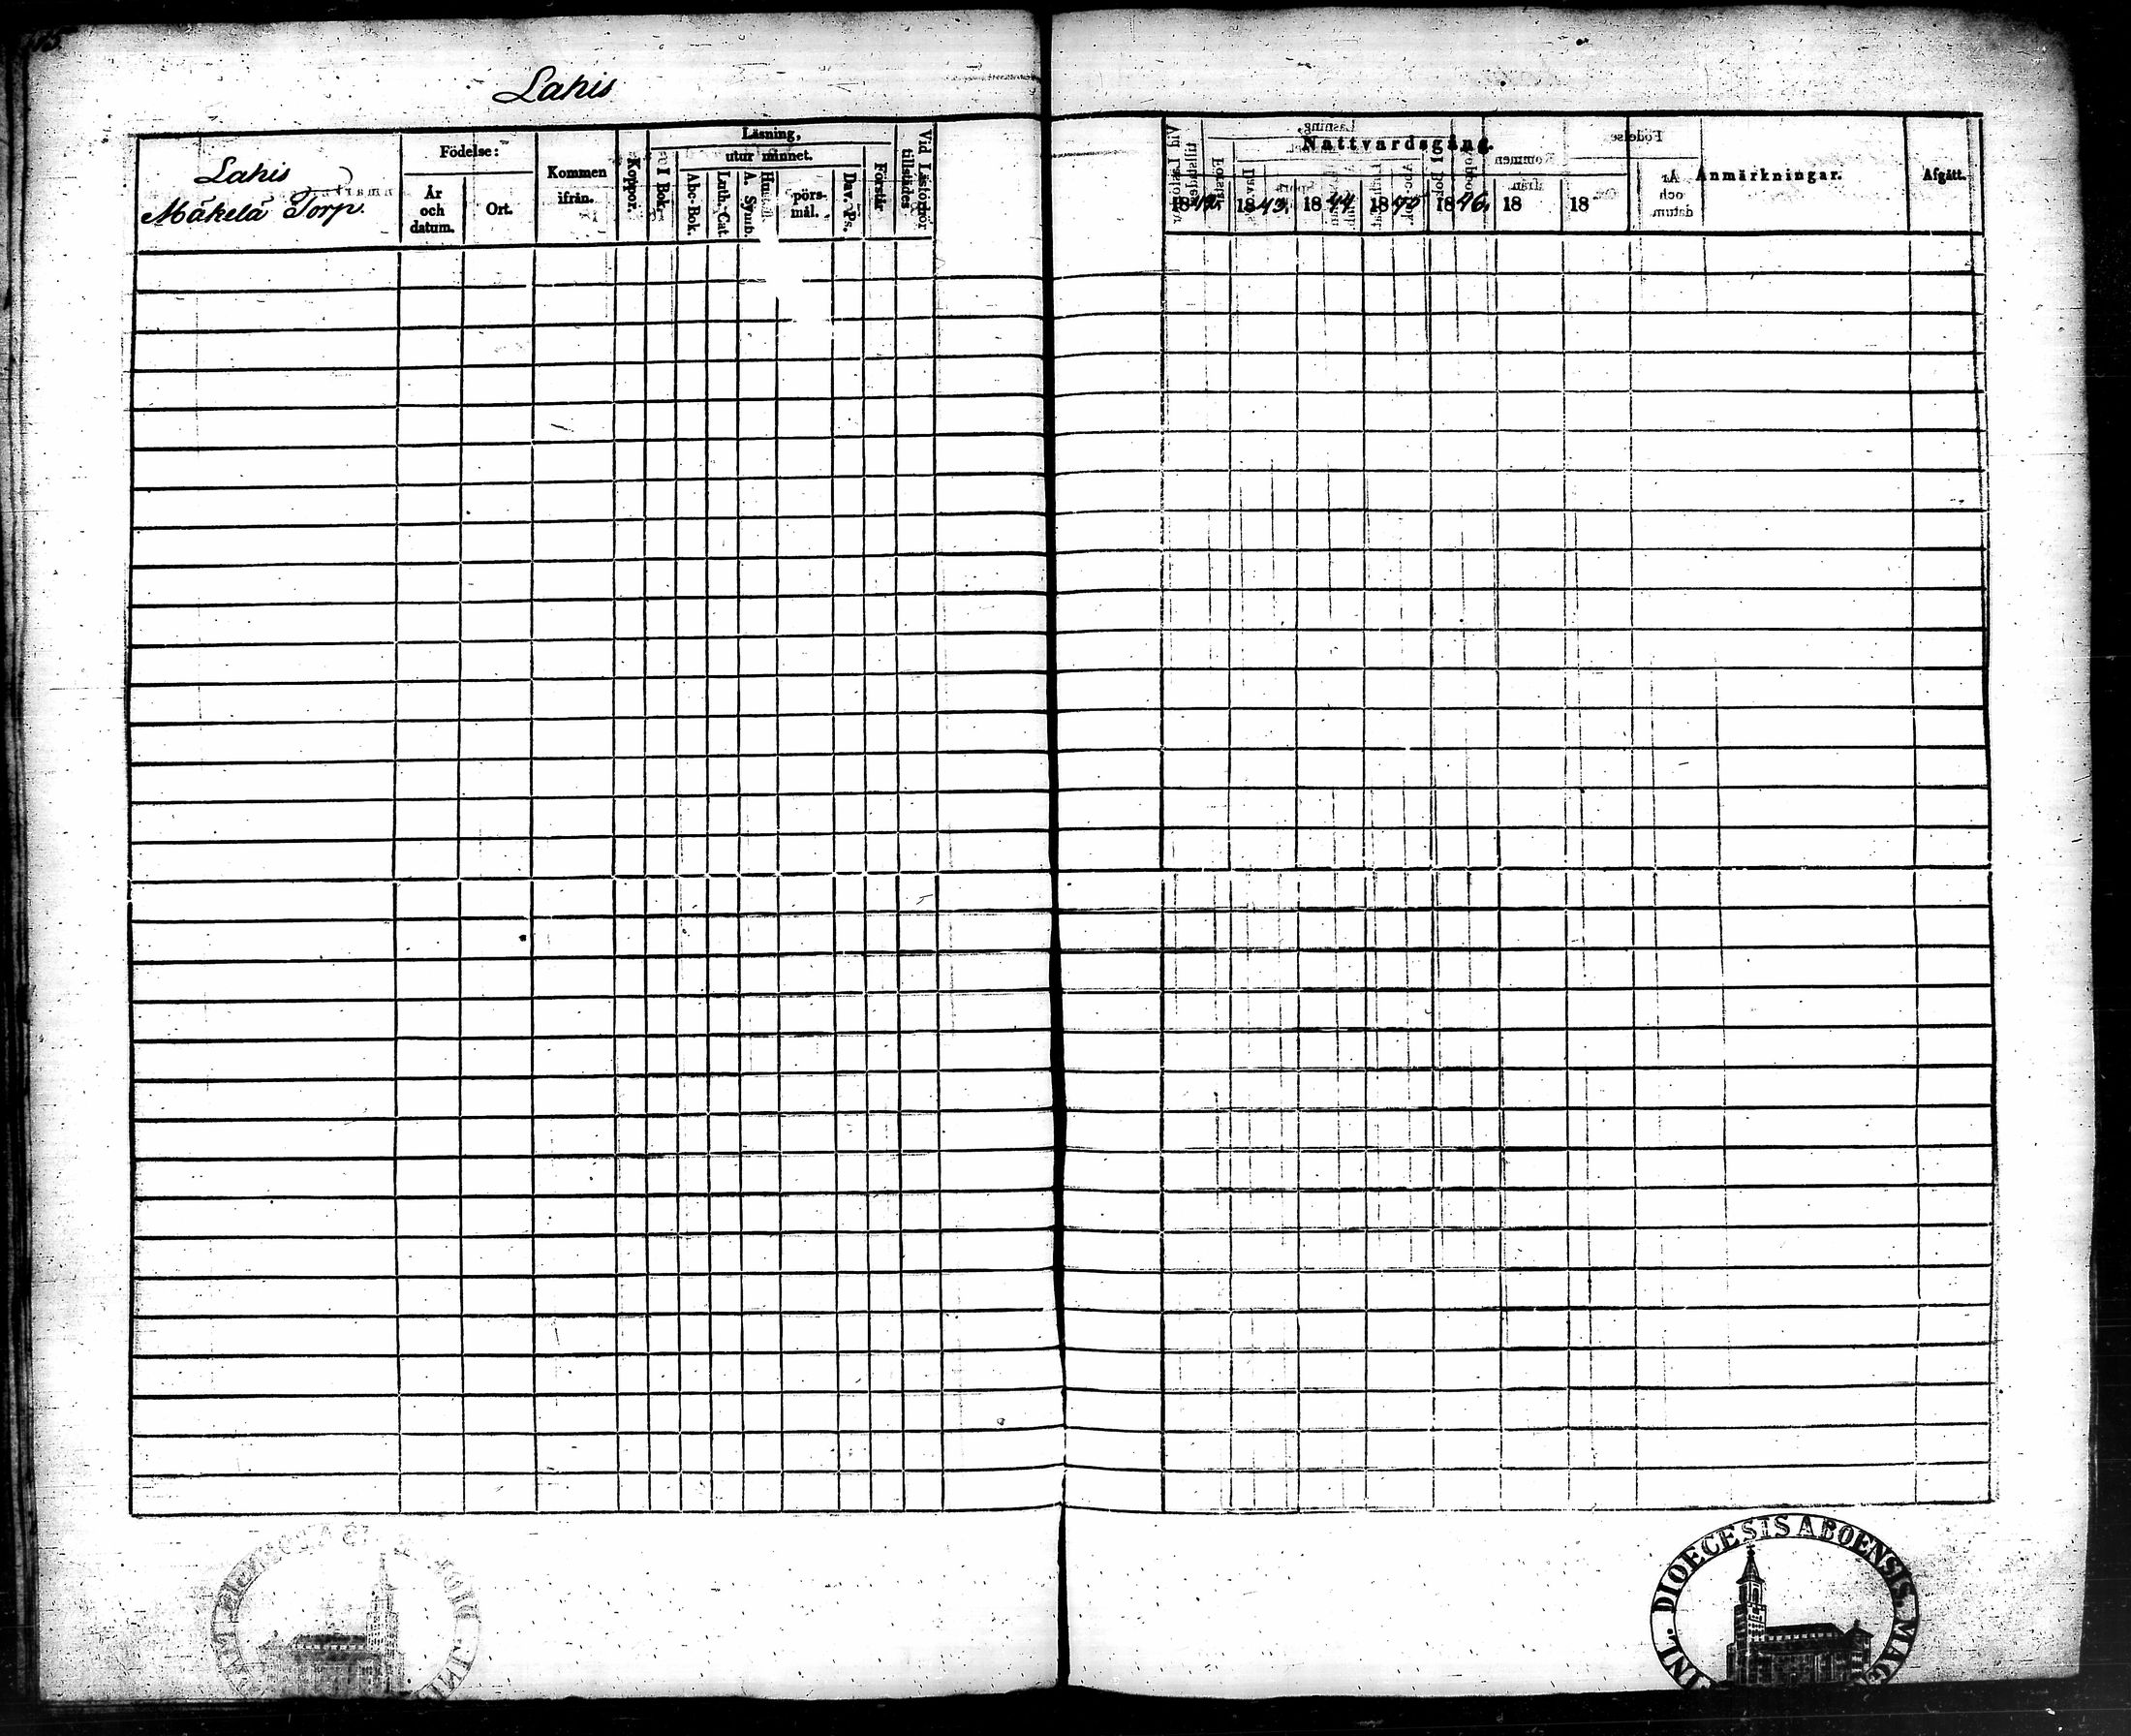 Lahis
Lahis
Mäkelä Torp.
Födelse:
År
och
datum.
Ort.
Kommen
ifrån.
Koppor.
Läsning,
I Bok.
utur minnet.
Abc-Bok.
Luth. Cat.
A. Symb.
Hustafl.
Spörs-
mål.
Dav. Ps.
Förstår
Vid Läsförhör
tillstädes
Nattvardsgång.
1842.
1843.
1844
1845
1846.
18
18
Anmärkningar.
Afgått.
FINL. DIOECESIS ABOENSIS. MAG